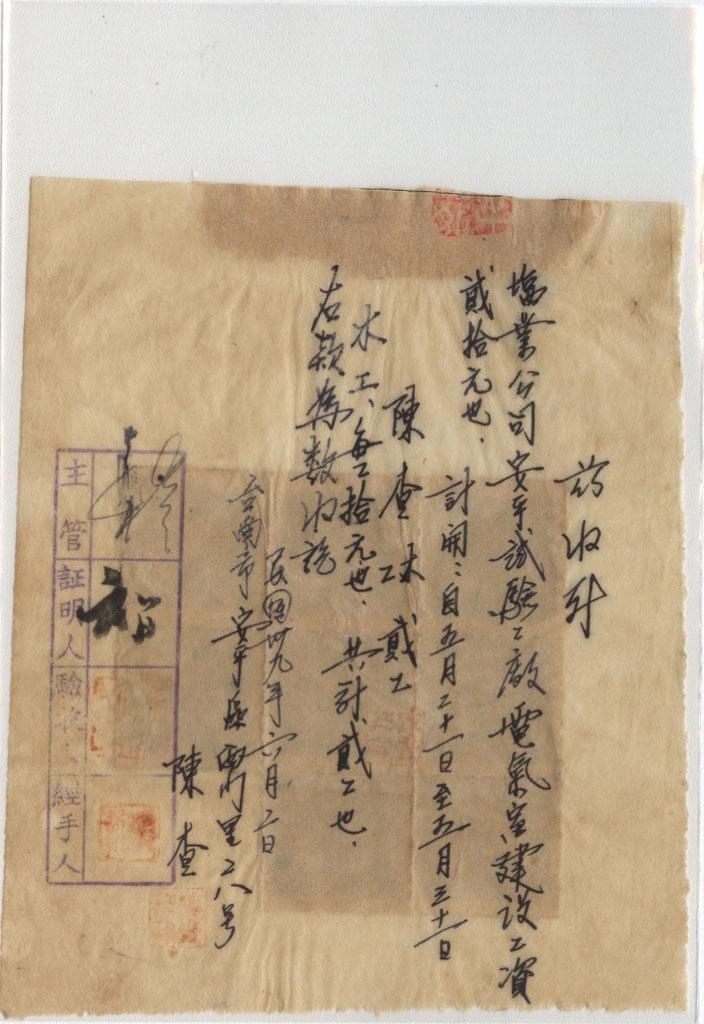 塩業公司安平試驗工廠電氣室建設工資
貳拾元也.
計開：自五月二十一日至五月三十一日
陳查 貳工
木工、每工拾元也. 共計貳工也.
右款為數收訖
民國卅九年六月二日
台南市安平區 里二八号
陳查
主管
証明人
驗收人
經手人